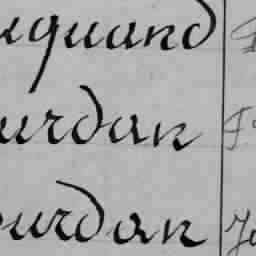 uquand
urdan
ourdan